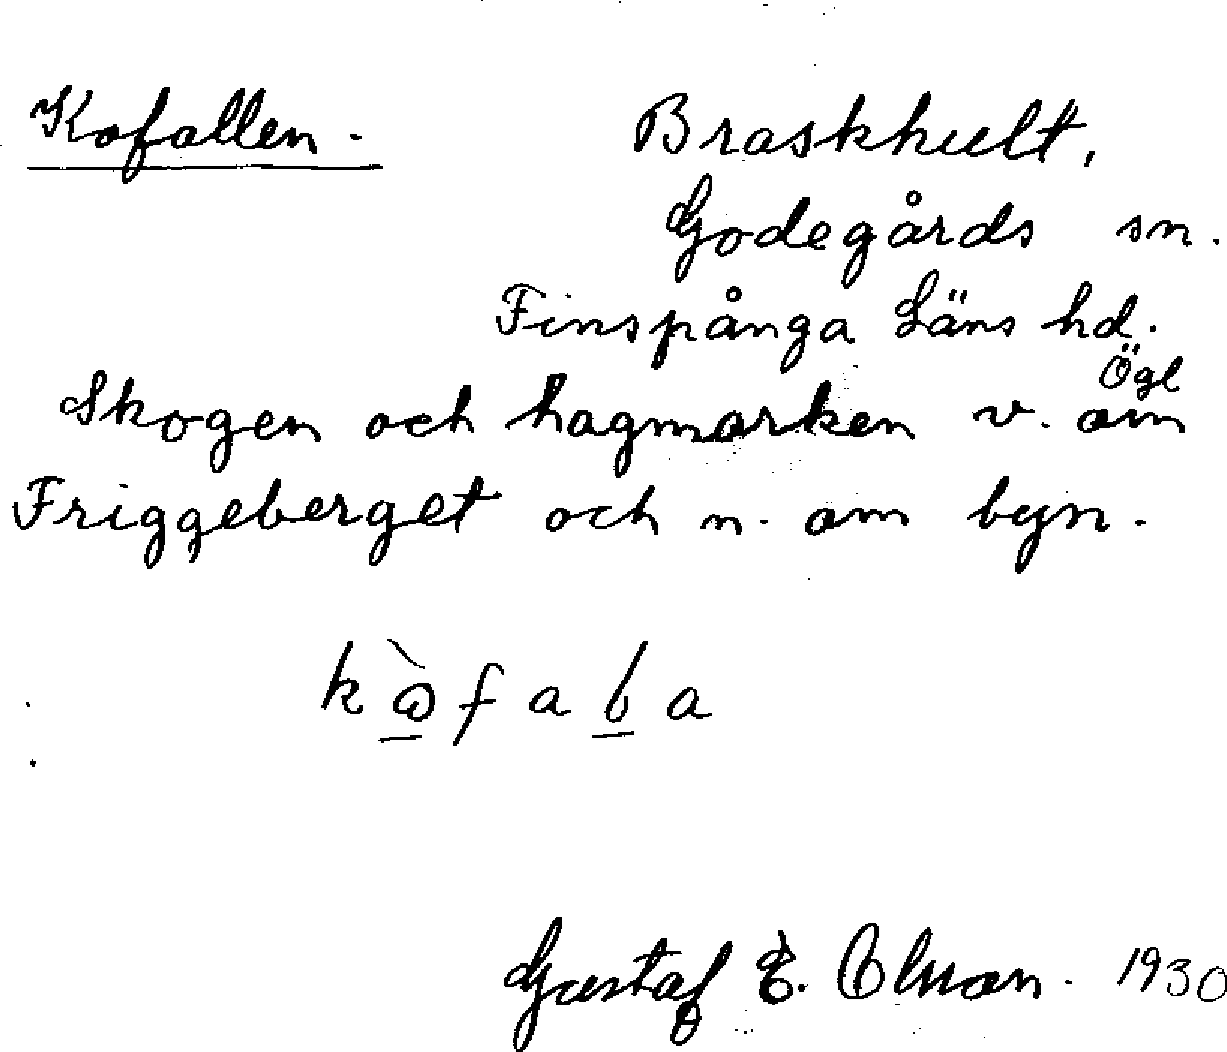 Kofallen. Braskhult,
Godegårds sn.
Finspånga Läns hd.
Ögl
Skogen och hagmarken v. om
Friggeberget och n. om byn.
Gustaf E. 1930